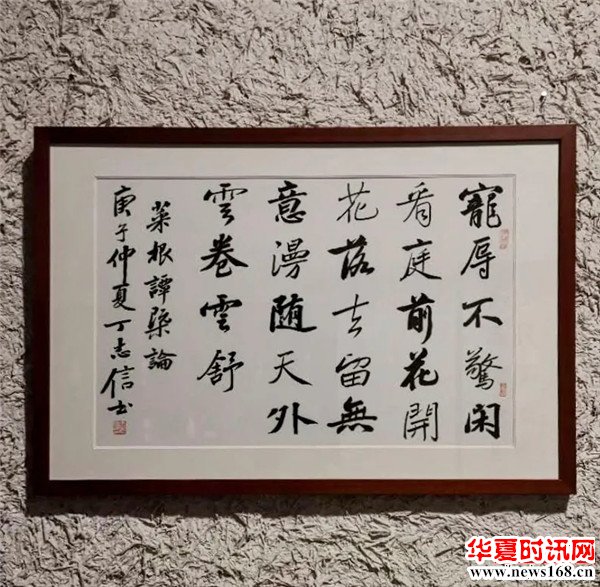 寵辱不驚閑
看庭前花開
花落去留無
意漫随天外
雲卷雲舒
菜根譚槩論
庚子仲夏丁志信书
华夏时讯网
www.news168.cn